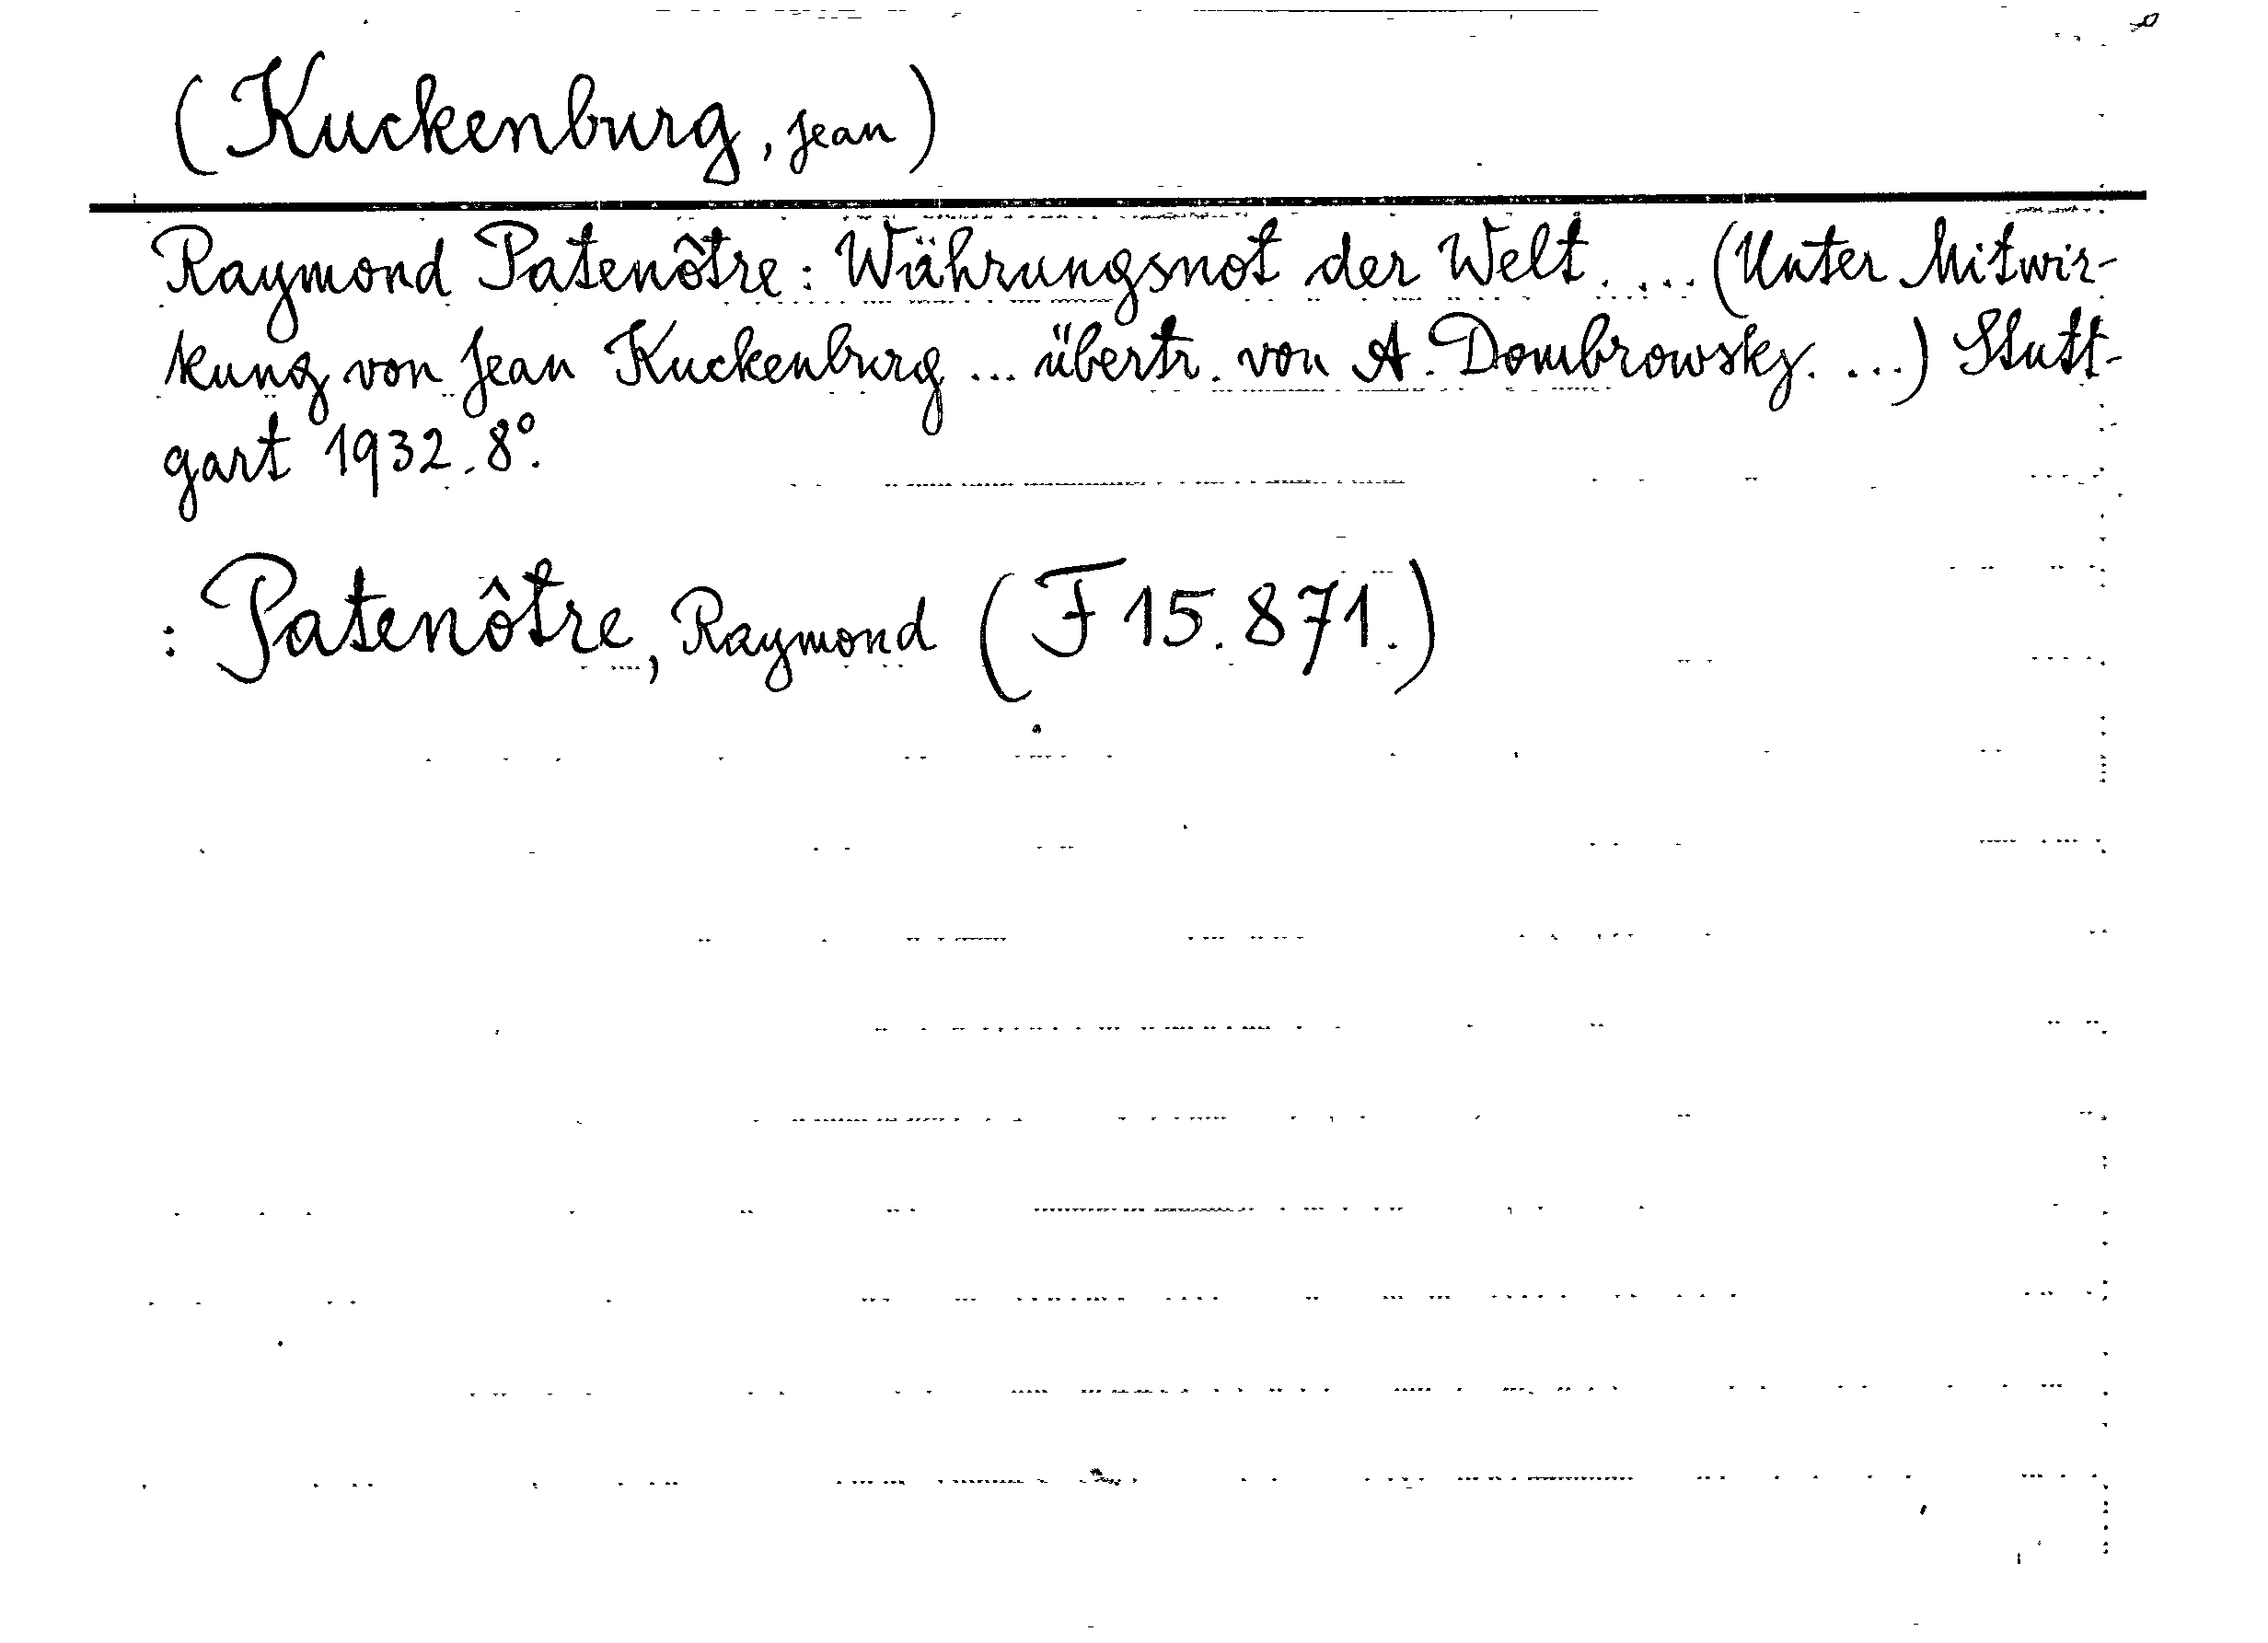 (Kuckenburg, Jean)
Raymond Patenôtre: Währungsnot der Welt. ... (Unter Mitwir-
kung von Jean Kuckenburg ... übertr. von A. Dombrowsky. ...) Stutt-
gart 1932. 8°.
: Patenôtre, Raymond (F 15.871.)